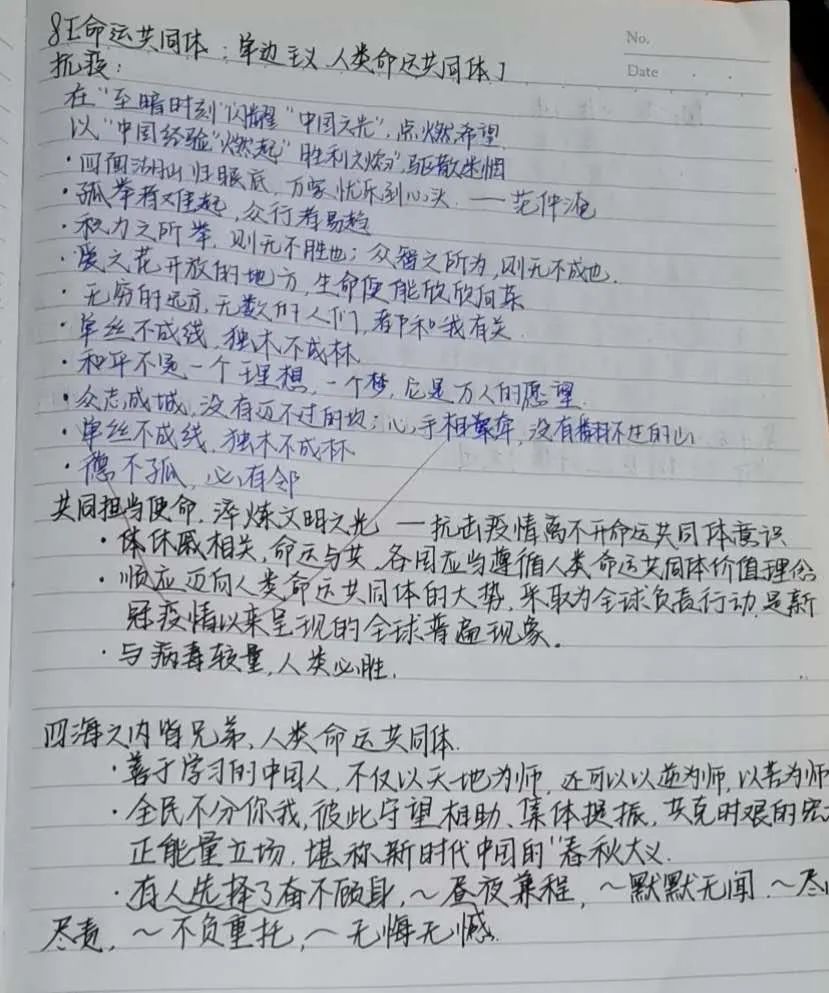 8[命运共同体：单边主义 人类命运共同体]
No.
抗疫：
Date
在“至暗时刻”闪耀“中国之光”，点燃希望
以“中国经验”燃起“胜利之火”，驱散迷惘
·四面湖山归眼底，万家忧乐到心头．—范仲淹
·孤举者难起，众行者易趋
·积力之所举，则无不胜也；众智之所为，则无不成也．
·爱之花开放的地方，生命便能欣欣向荣
·无穷的远方，无数的人们，都和我有关．
·单丝不成线，独木不成林
·和平不是一个理想，一个梦，它是万人的愿望．
·众志成城，没有迈不过的坎；心手相牵，没有翻不过的山
·单丝不成线，独木不成林
·德不孤，必有邻
共同担当使命，淬炼文明之光 —抗击疫情离不开命运共同体意识
·体休戚相关，命运与共，各国应当遵循人类命运共同体价值理念
·顺应迈向人类命运共同体的大势，采取为全球负责行动，是新
冠疫情以来呈现的全球普遍现象。
·与病毒较量，人类必胜．
四海之内皆兄弟，人类命运共同体．
·善于学习的中国人，不仅以天地为师，还可以以逆为师，以苦为师
·全民不分你我，彼此守望相助、集体提振，共克时艰的宏
正能量立场，堪称新时代中国的“春秋大义．
·有人选择了奋不顾身，～昼夜兼程，～默默无闻．～尽
尽责，～不负重托，～无悔无憾．